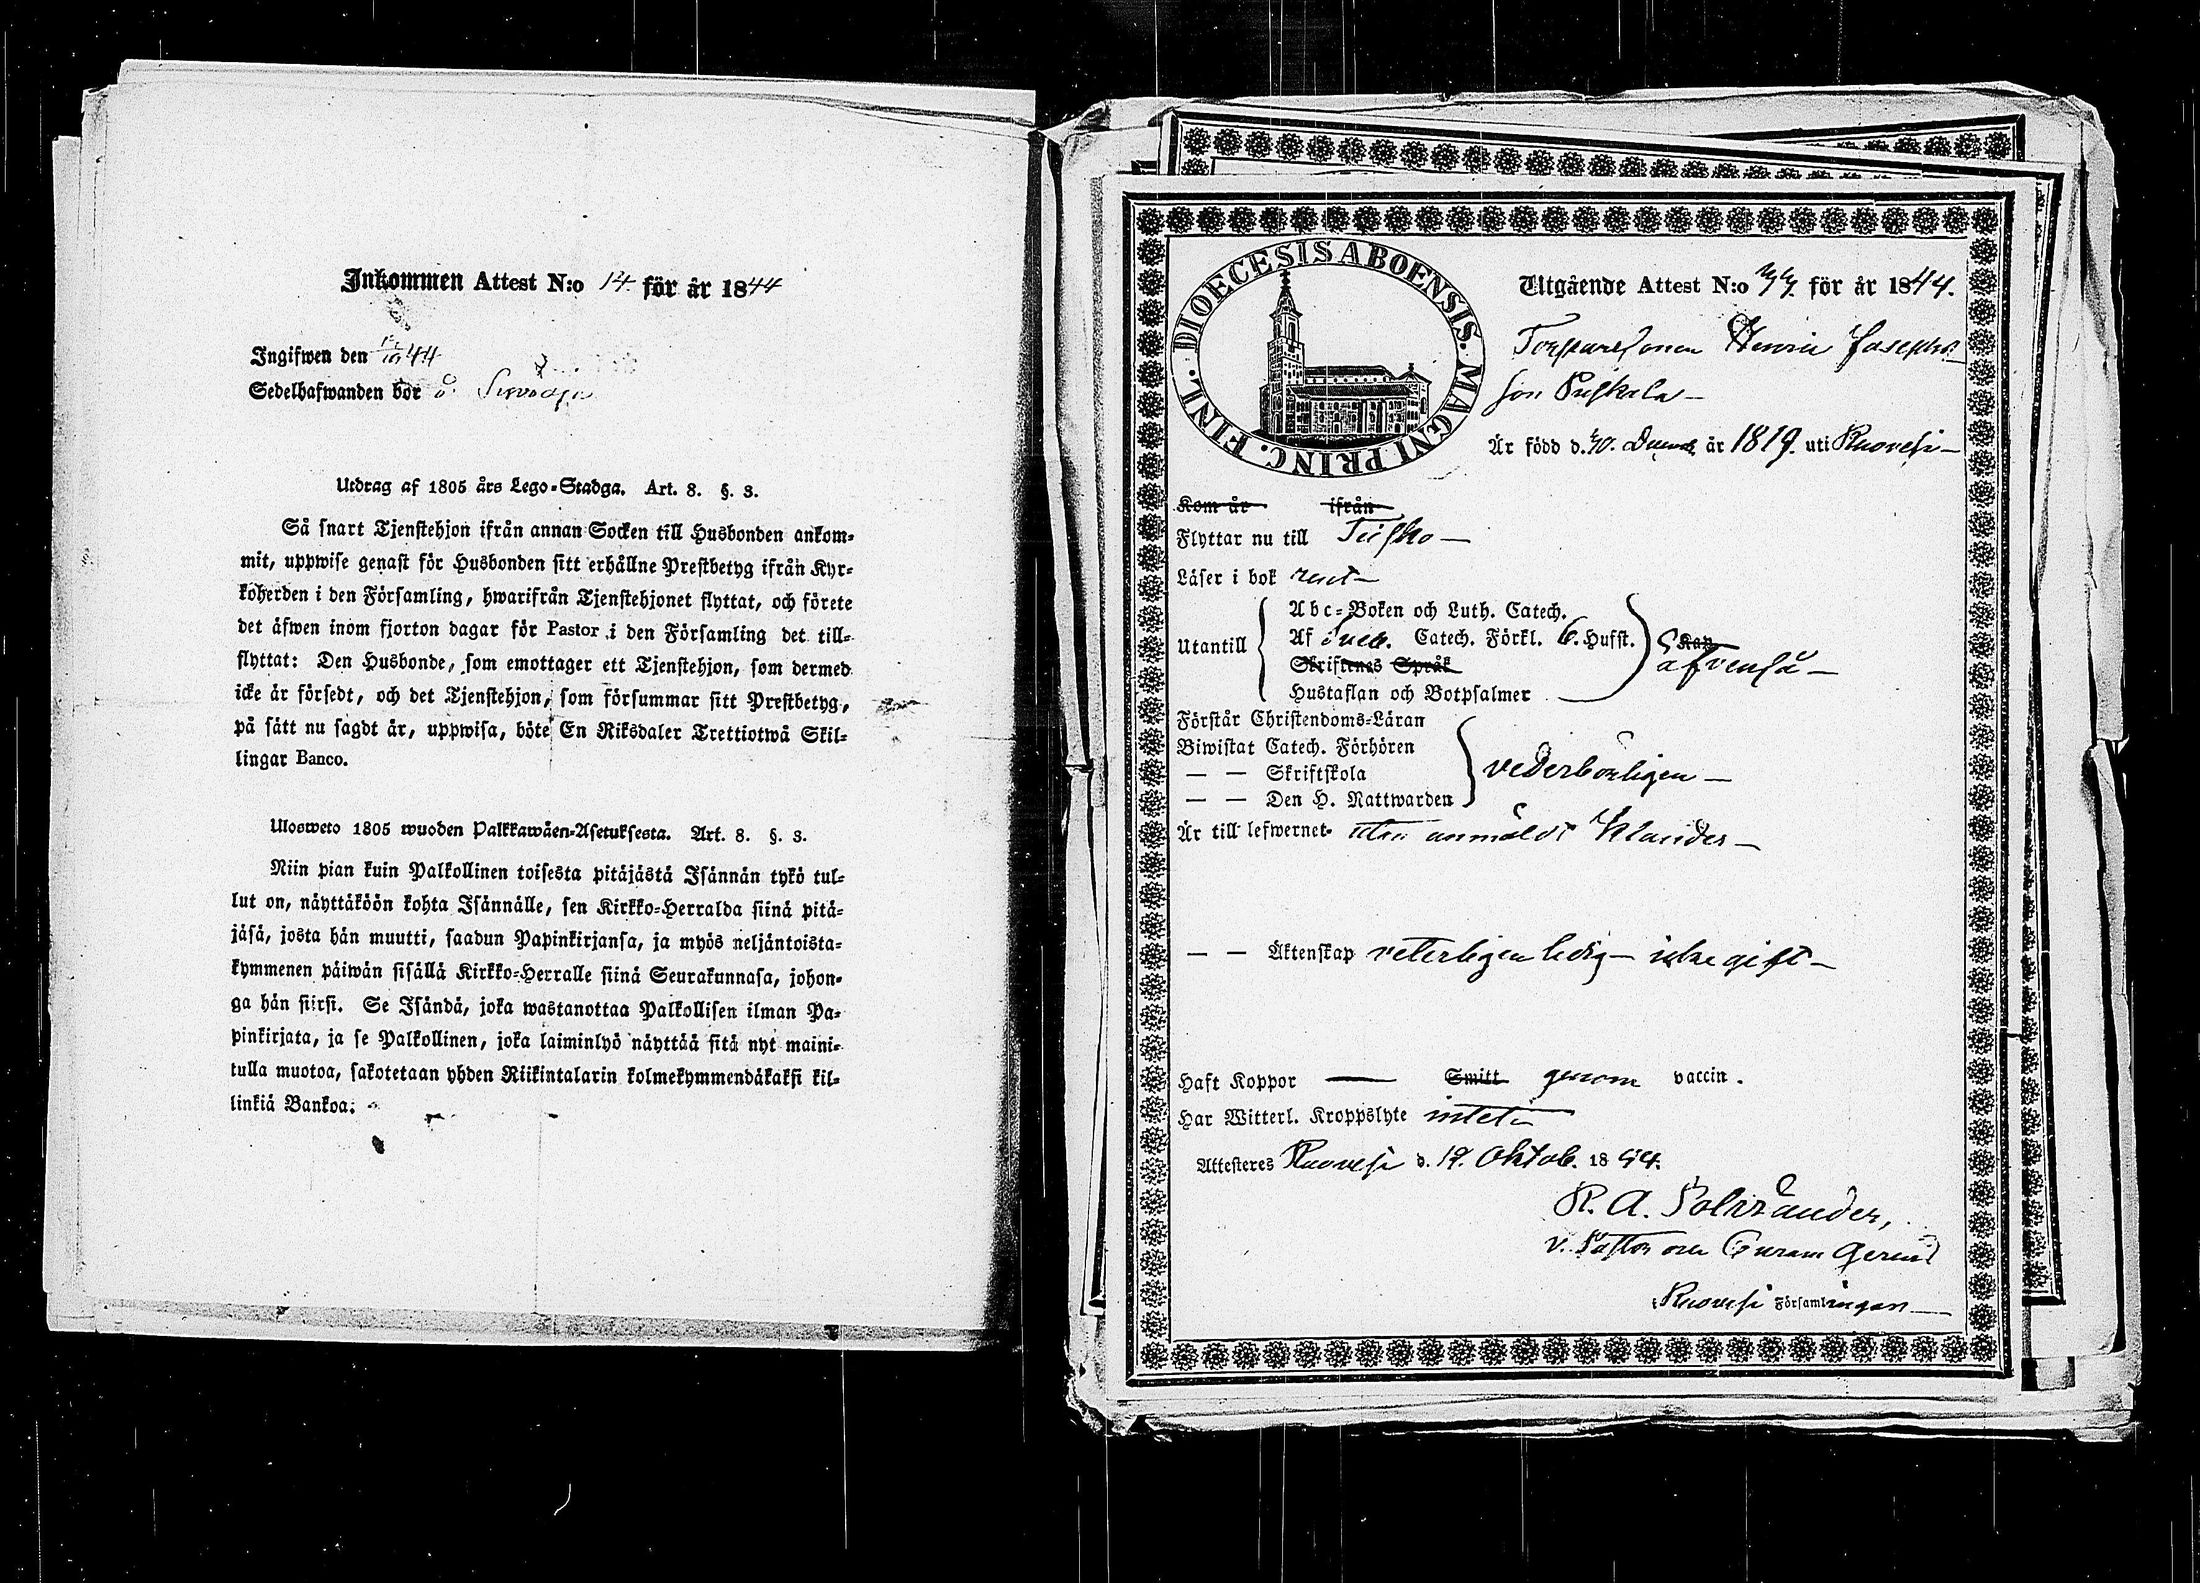 Inkommen Attest N:o 14. för år 1844
Ingifwen den 44
Sedelhafwanden bor å
Utdrag af 1805 års Lego-Stadga. Art. 8. §. 3.
Så snart Tjenstehjon ifrån annan Socken till Husbonden ankom-
mit, uppwise genast för Husbonden sitt erhållne Prestbetyg ifrån Kyr-
koherden i den Församling, hwarifrån Tjenstehjonet flyttat, och förete
det äfwen inom fjorton dagar för Pastor i den Församling det till-
flyttat: Den Husbonde, som emottager ett Tjenstehjon, som dermed
icke är försedt, och det Tjenstehjon, som försummar sitt Prestbetyg,
på sätt nu sagdt är, uppwisa, böte En Riksdaler Trettiotwå Skil-
lingar Banco.
Ulosweto 1805 wuoden Palkkawäen-Asetuksesta. Art. 8. §. 3.
Niin pian kuin Palkollinen toisesta pitäjästä Isännän tykö tul-
lut on, näyttäköön kohta Isännälle, sen Kirkko-Herralda siinä pitä-
jäsä, josta hän muutti, saadun Papinkirjansa, ja myös neljäntoista-
kymmenen päiwän sisällä Kirkko-Herralle siinä Seurakunnasa, johon-
ga hän siirsi. Se Isändä, joka wastanottaa Palkollisen ilman Pa-
pinkirjata, ja se Palkollinen, joka laiminlyö näyttää sitä nyt maini-
tulla muotoa, sakotetaan yhden Riikintalarin kolmekymmendäkaksi kil-
linkiä Bankoa.
DIOECESIS ABOENSIS. MAGNI PRINC. FINL.
Utgående Attest N:o för år 1844.
Torparesonen Henric Josephs
son Puskala
Är född d. 30. Decemb. år 1819. uti Ruovesi
Kom år ifrån
Flyttar nu till
Läser i bok rent
Abc-Boken och Luth. Catech.
Utantill Af Sveb. Catech. Förkl. 6. Hufst. Kap
Skriftenes Språk äfvenså
Hustaflan och Botpsalmer
Förstår Christendoms-Läran
Biwistat Catech. Förhören
— — Skriftskola vederbörligen
— — Den H. Nattwarden
Är till lefwernet utan anmäldt klander
— — Äktenskap veterligen ledig icke gift
Haft Koppor — Smitt genom vaccin.
Har Witterl. Kroppslyte intet
Attesteres Ruovesi d. 19. Oktob. 1844.
R. A. Polviander,
v. Pastor och Curam Gerens
i Ruovesi Församlingen